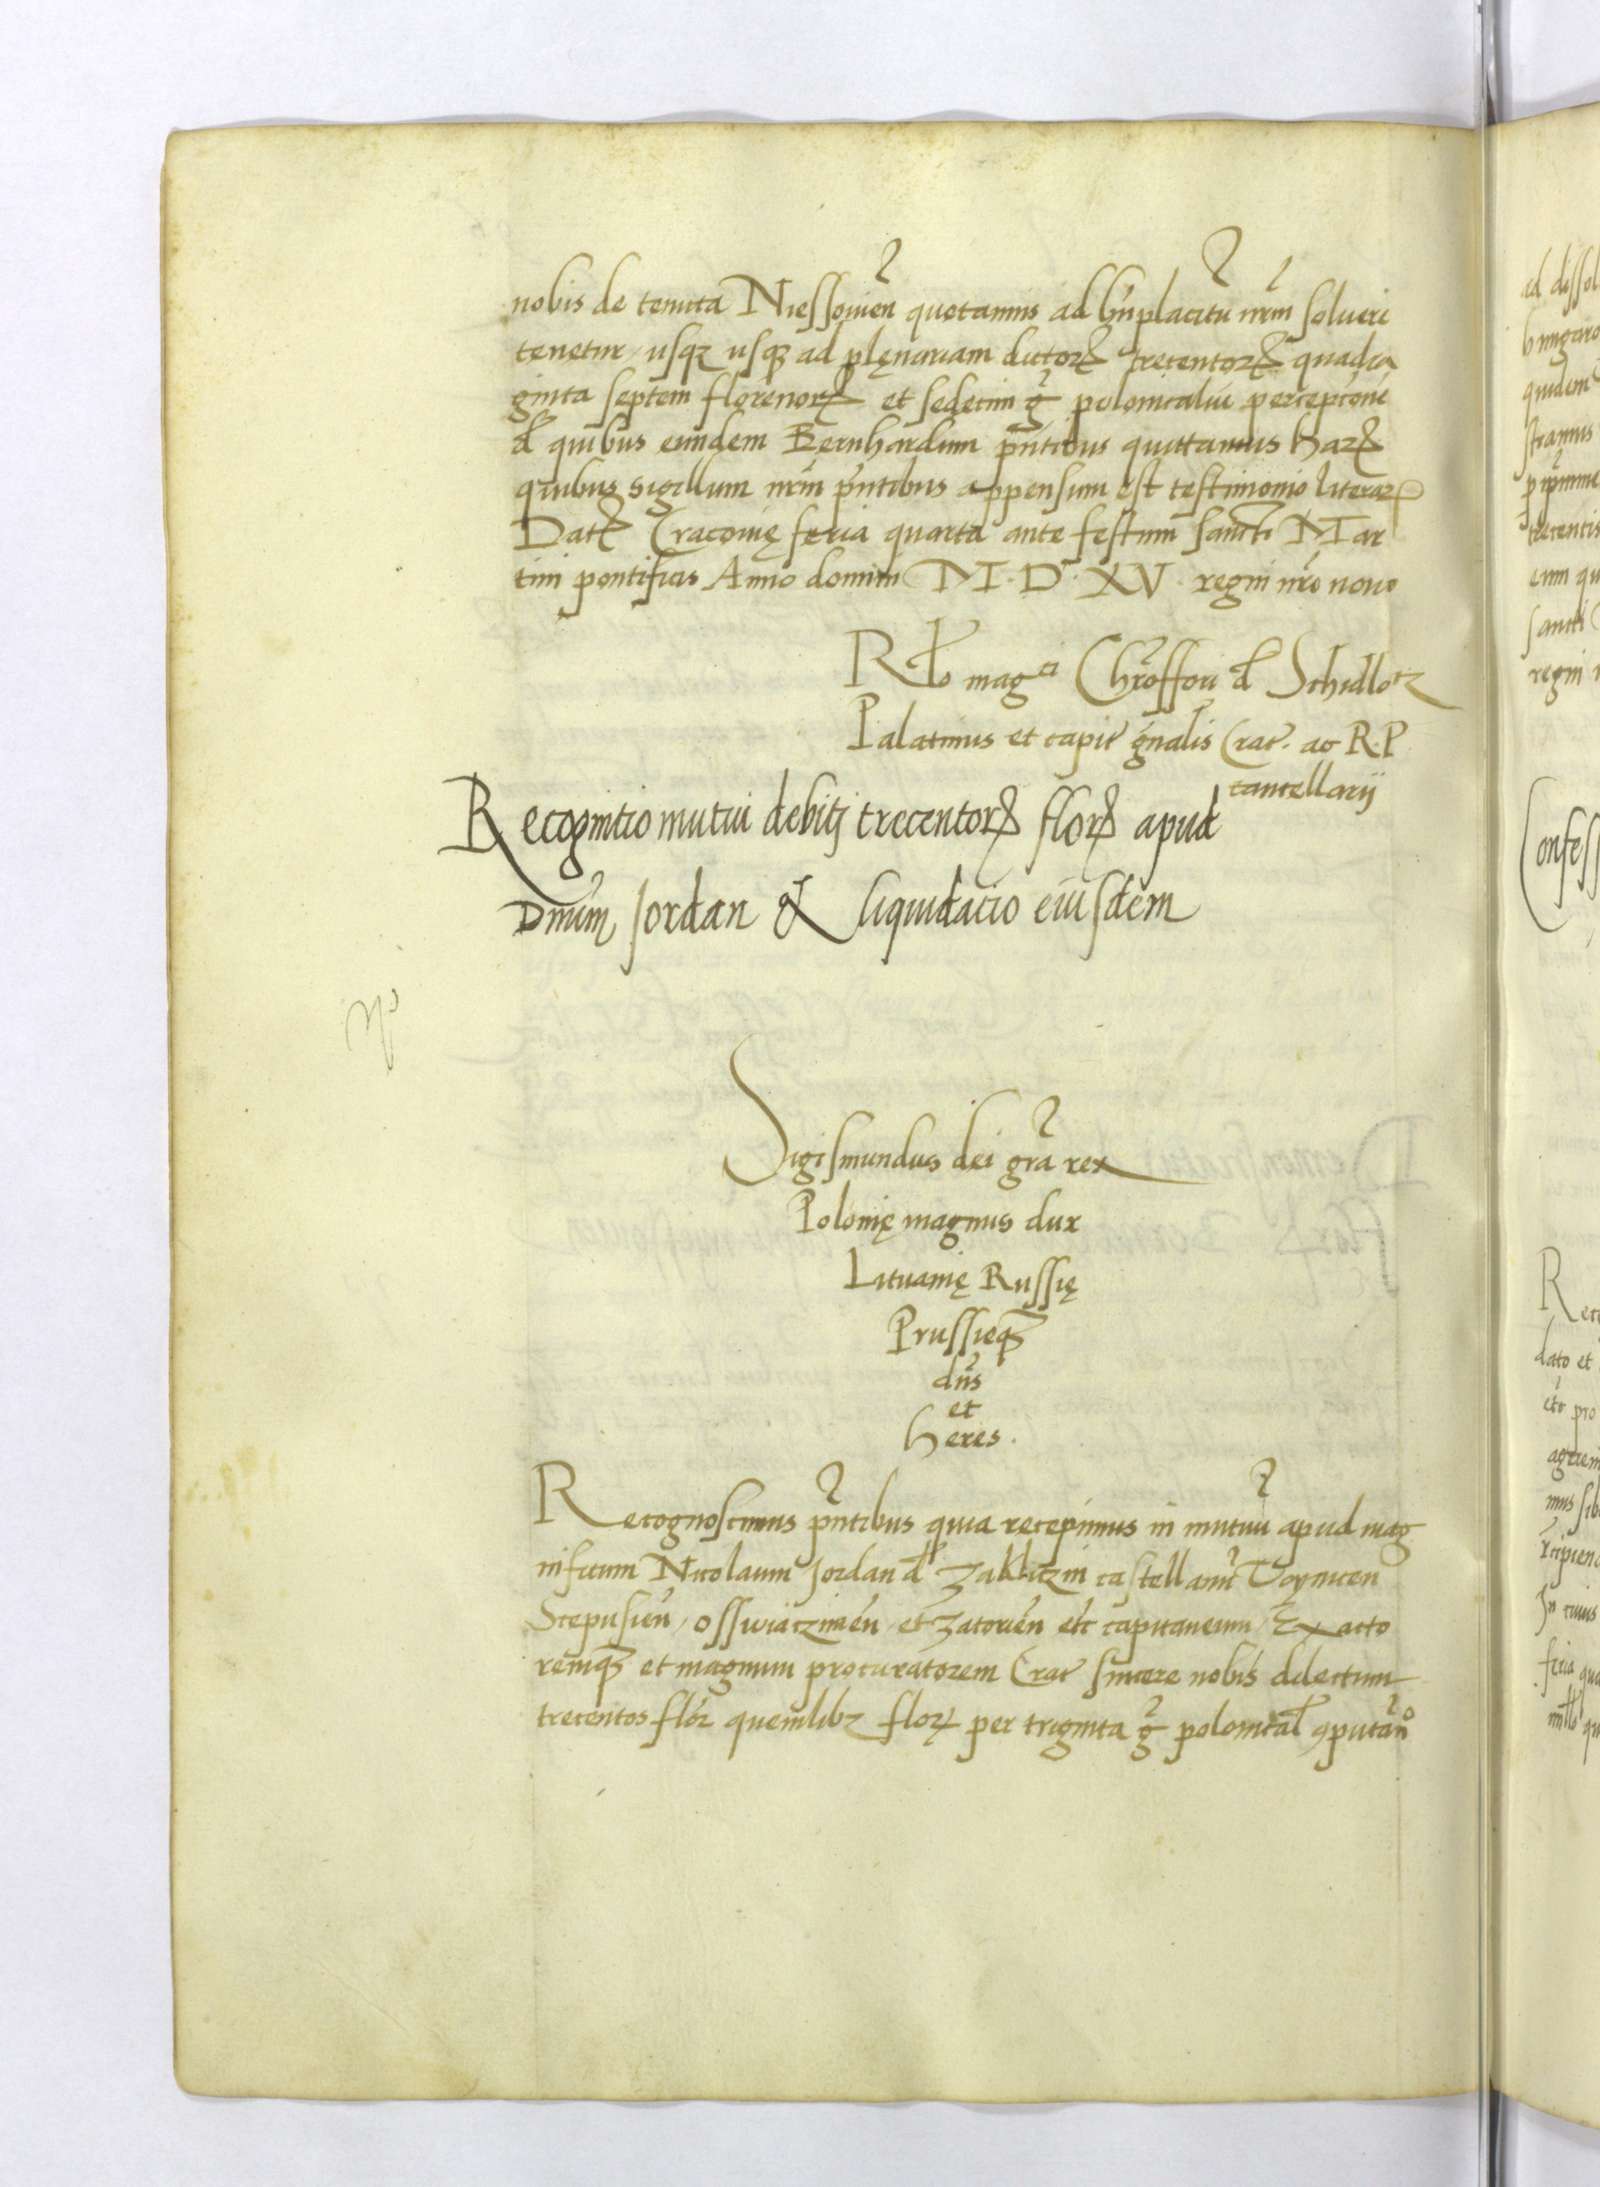 nobis de tenuta Niessowień quotannis ad bńplacitū nr̄m solvere
tenetur, usqꝫ usqꝫ ad plęnariam dictorꝝ trecentorꝝ quadra
ginta septem florenorꝝ et sedecim g̃ polonicaliū perceptōnē
d̄ quibus eundem Bernhardum pn̄tibus quittamus harꝝ
quibus sigillum nr̄m pn̄tibus appensum est testimonio literarꝝ
Datꝝ Cracovię feria quarta ante festum sancti Mar
tini pontificis Anno domini M·D·XV· regni nr̄o nono
Rlo magci Chrōffori d̄ Schidlo
Palatinus et capit̄ gn̄alis Crac̄. ac R.P.
cancellarij
Recognitio mutui debitj trecentorꝝ florꝝ apud
Dnūm Jordan & liquidacio eiusdem
Sigismundus dei grā rex
Polonię magnus dux
Lituanię Russię
Prussieqꝫ
dn̄s
et
heres.
Recognoscimus pn̄tibus quia recepimus in mutuū apud mag
nificum Nicolaum Jordan d̄ Zakliczin castellanū Voynicen
Scepusień, osswiacziméń, et Zatorień etc̄ capitaneum, Exacto
remqꝫ et magnum procuratorem Crac̄ sincere nobis dilectum
trecentos flor̄ quemlibꝫ florꝝ per triginta g̃ polonical̄ ꝯputańo